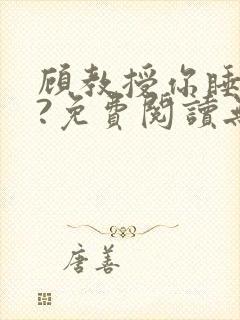 顾教授你睡
?免費閱讀
唐善